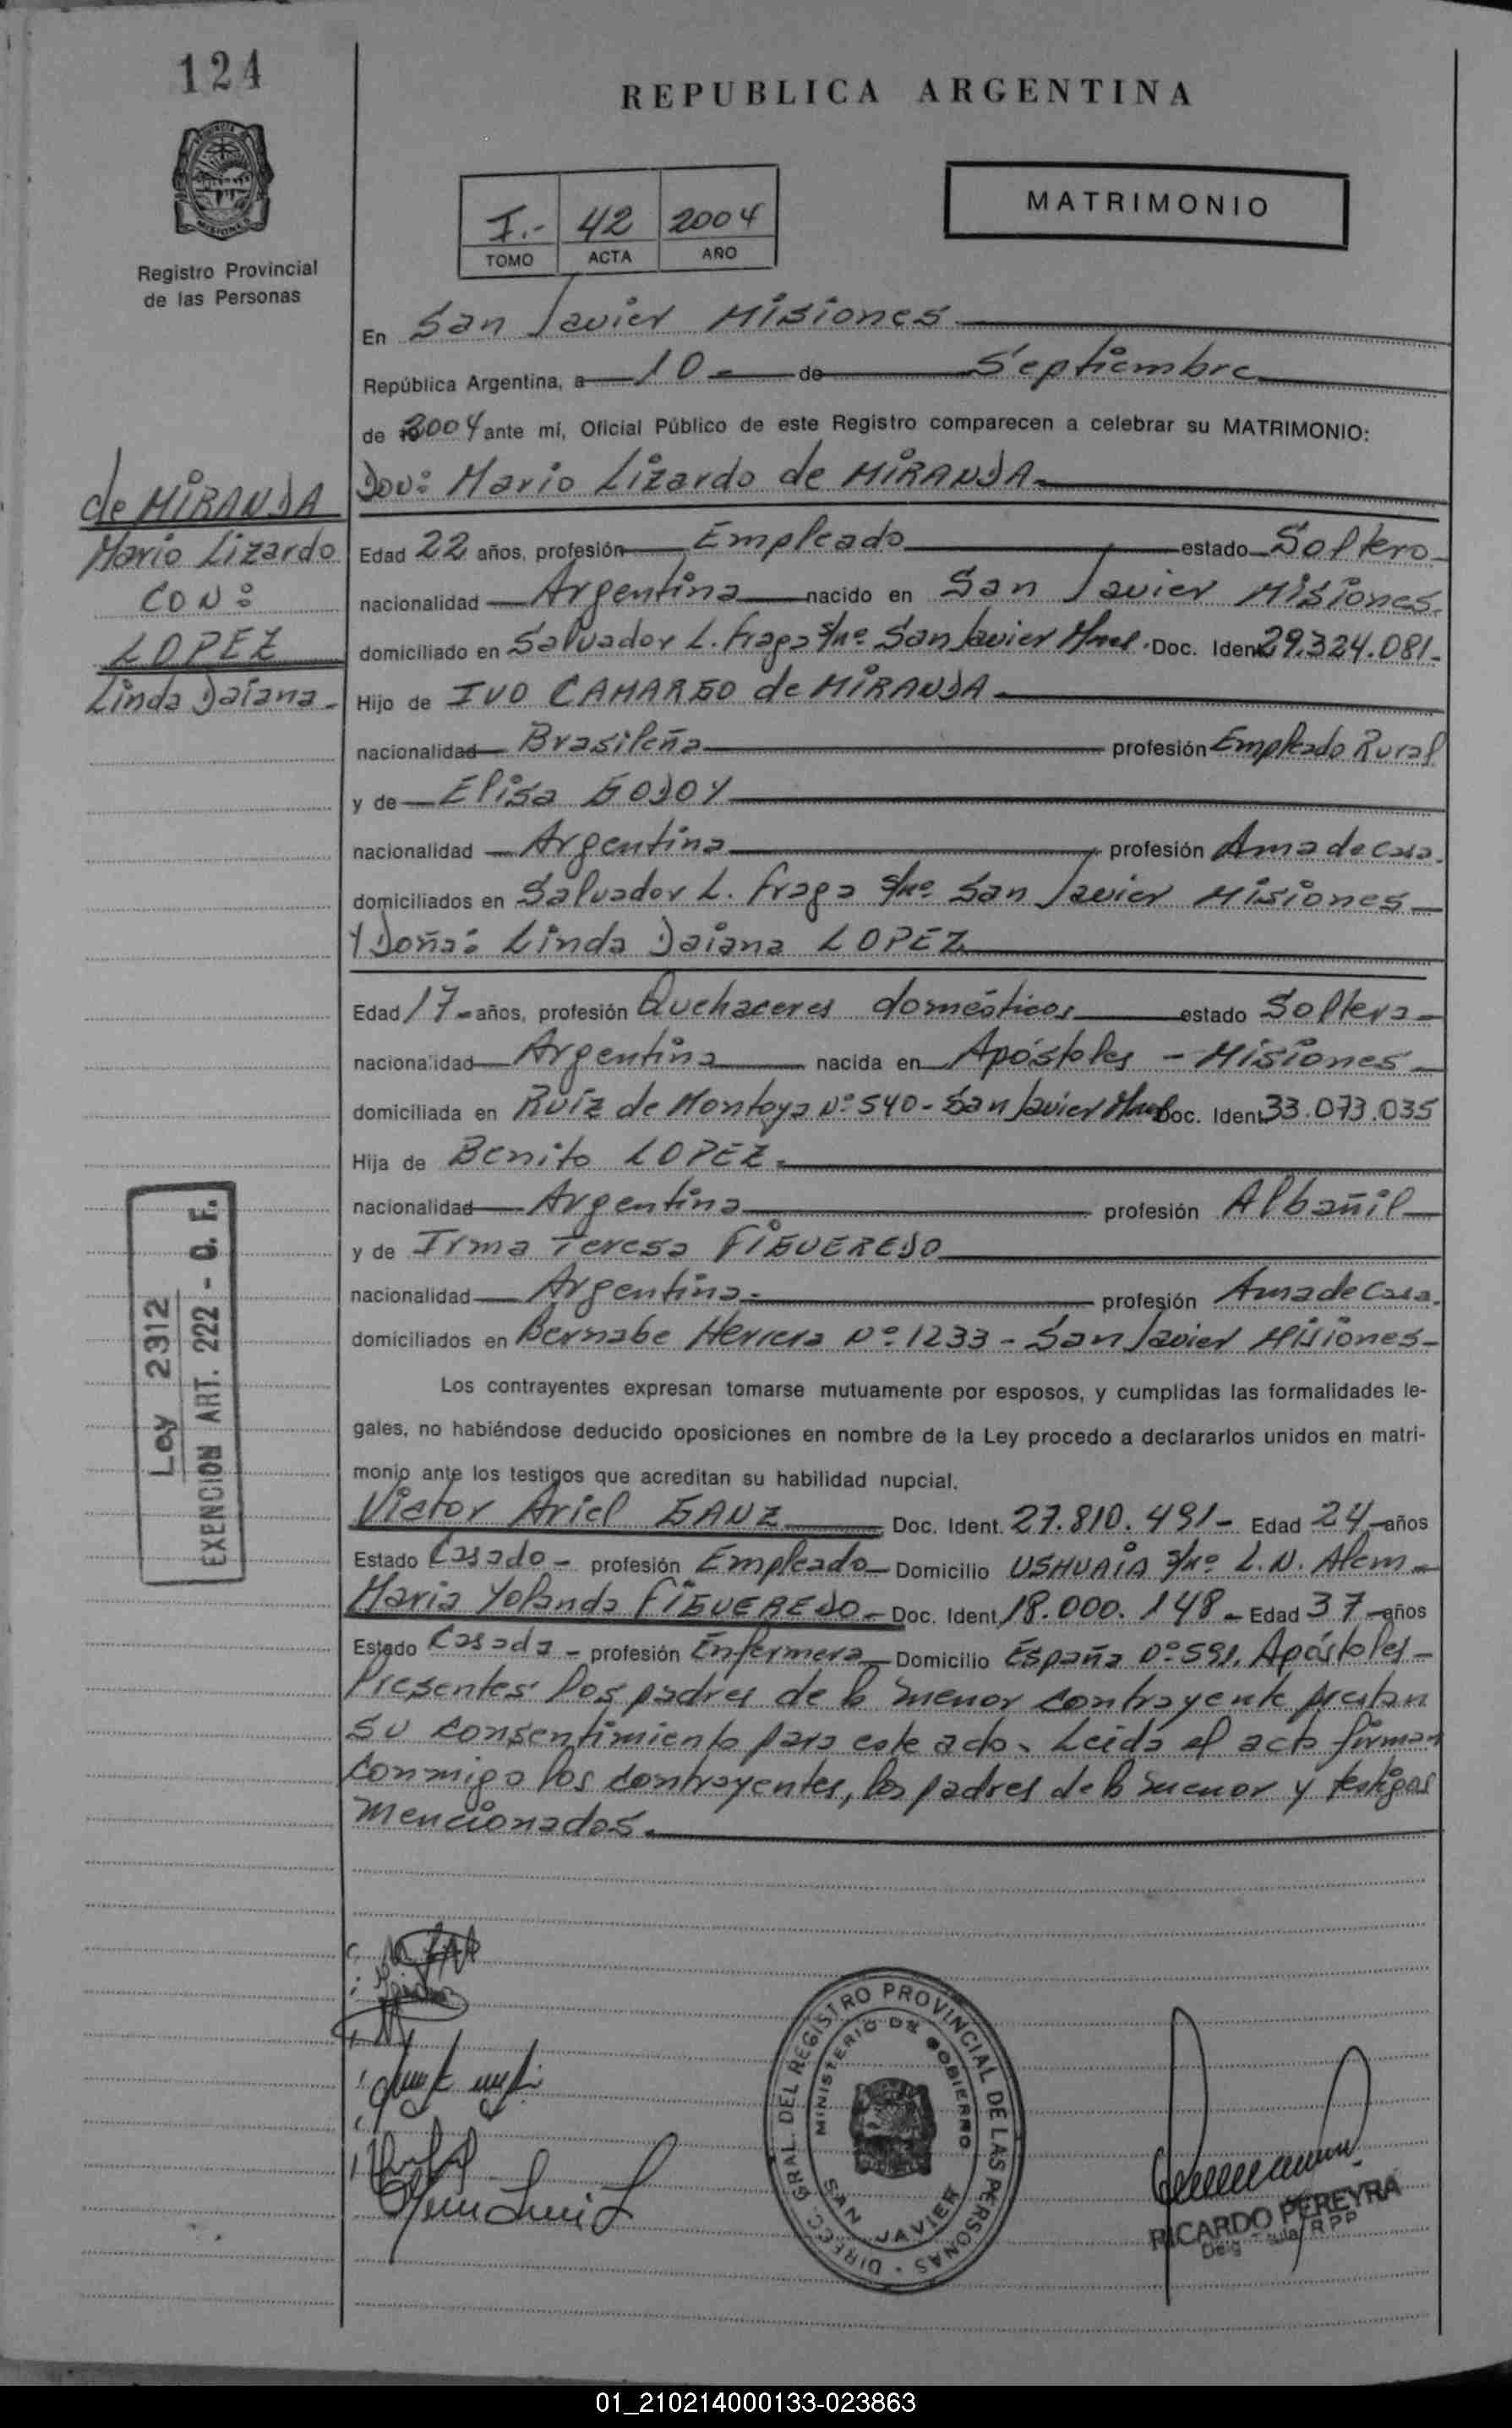 124
REPUBLICA ARGENTINA
PROVINCIA DE MISIONES
Registro Provincial
de las Personas
MATRIMONIO
I.- 42 2004
TOMO ACTA AÑO
En San Javier Misiones
República Argentina, a 10 de Septiembre
de 2004 ante mí, Oficial Público de este Registro comparecen a celebrar su MATRIMONIO:
Don: Mario Lizardo de MIRANDA
de MIRANDA
Mario Lizardo
CON:
LOPEZ
Linda Daiana
Edad 22 años, profesión Empleado estado Soltero
nacionalidad Argentina nacido en San Javier Misiones
domiciliado en Salvador L. Fraga s/nº San Javier Mnes. Doc. Ident. 29.324.081-
Hijo de IVO CAMARGO de MIRANDA
nacionalidad Brasileña profesión Empleado Rural
y de Elisa GODOY
nacionalidad Argentina profesión Ama de casa.
domiciliados en Salvador L. Fraga s/nº San Javier Misiones
Y Doña: Linda Daiana LOPEZ
Edad 17 años, profesión Quehaceres domésticos estado Soltera
nacionalidad Argentina nacida en Apóstoles - Misiones
domiciliada en Ruiz de Montoya Nº 540 - San Javier Mnes Doc. Ident. 33.073.035
Hija de Benito LOPEZ
nacionalidad Argentina profesión Albañil
y de Irma Teresa FIGUEREDO
nacionalidad Argentina profesión Ama de Casa.
domiciliados en Bernabe Herrera Nº 1233 - San Javier Misiones
Los contrayentes expresan tomarse mutuamente por esposos, y cumplidas las formalidades le-
gales, no habiéndose deducido oposiciones en nombre de la Ley procedo a declararlos unidos en matri-
monio ante los testigos que acreditan su habilidad nupcial.
Victor Ariel GANZ Doc. Ident. 27.810.491- Edad 24 años
Estado Casado - profesión Empleado Domicilio USHUAIA s/nº L.N. Alem
Maria Yolanda FIGUEREDO Doc. Ident. 18.000.148 - Edad 37 años
Estado Casada - profesión Enfermera Domicilio España Nº 591. Apóstoles
Presentes los padres de la menor contrayente prestan
su consentimiento para este acto. Leida el acta firman
conmigo los contrayentes, los padres de la menor y testigos
mencionados.
Ley 2312
EXENCION ART. 222 - Q. F.
DIRECC. GRAL. DEL REGISTRO PROVINCIAL DE LAS PERSONAS
MINISTERIO DE GOBIERNO
SAN JAVIER
RICARDO PEREYRA
01_210214000133-023863